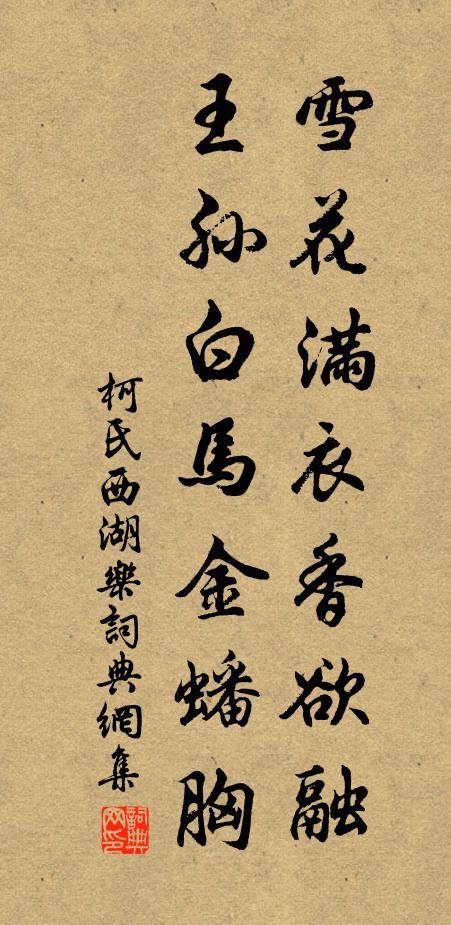 雪花滿衣香欲融
王孫白馬金蟠胸
柯氏西湖樂詞典網集
詞典
网印